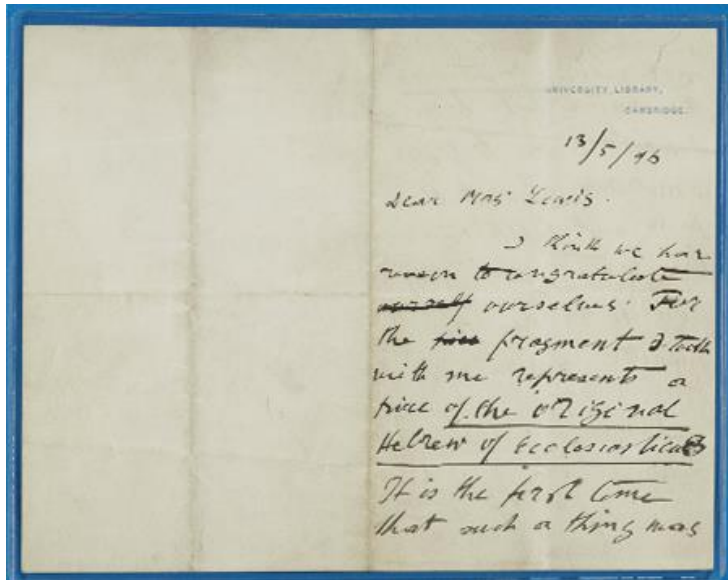 UNIVERSITY LIBRARY,
CAMBRIDGE.
13/5/96
Dear Mrs Lewis.
I think we have
reason to congratulate
ourself ourselves. For
the fragment I took
with me represents a
piece of the original
Hebrew of Ecclesiasticus
It is the first time
that such a thing was